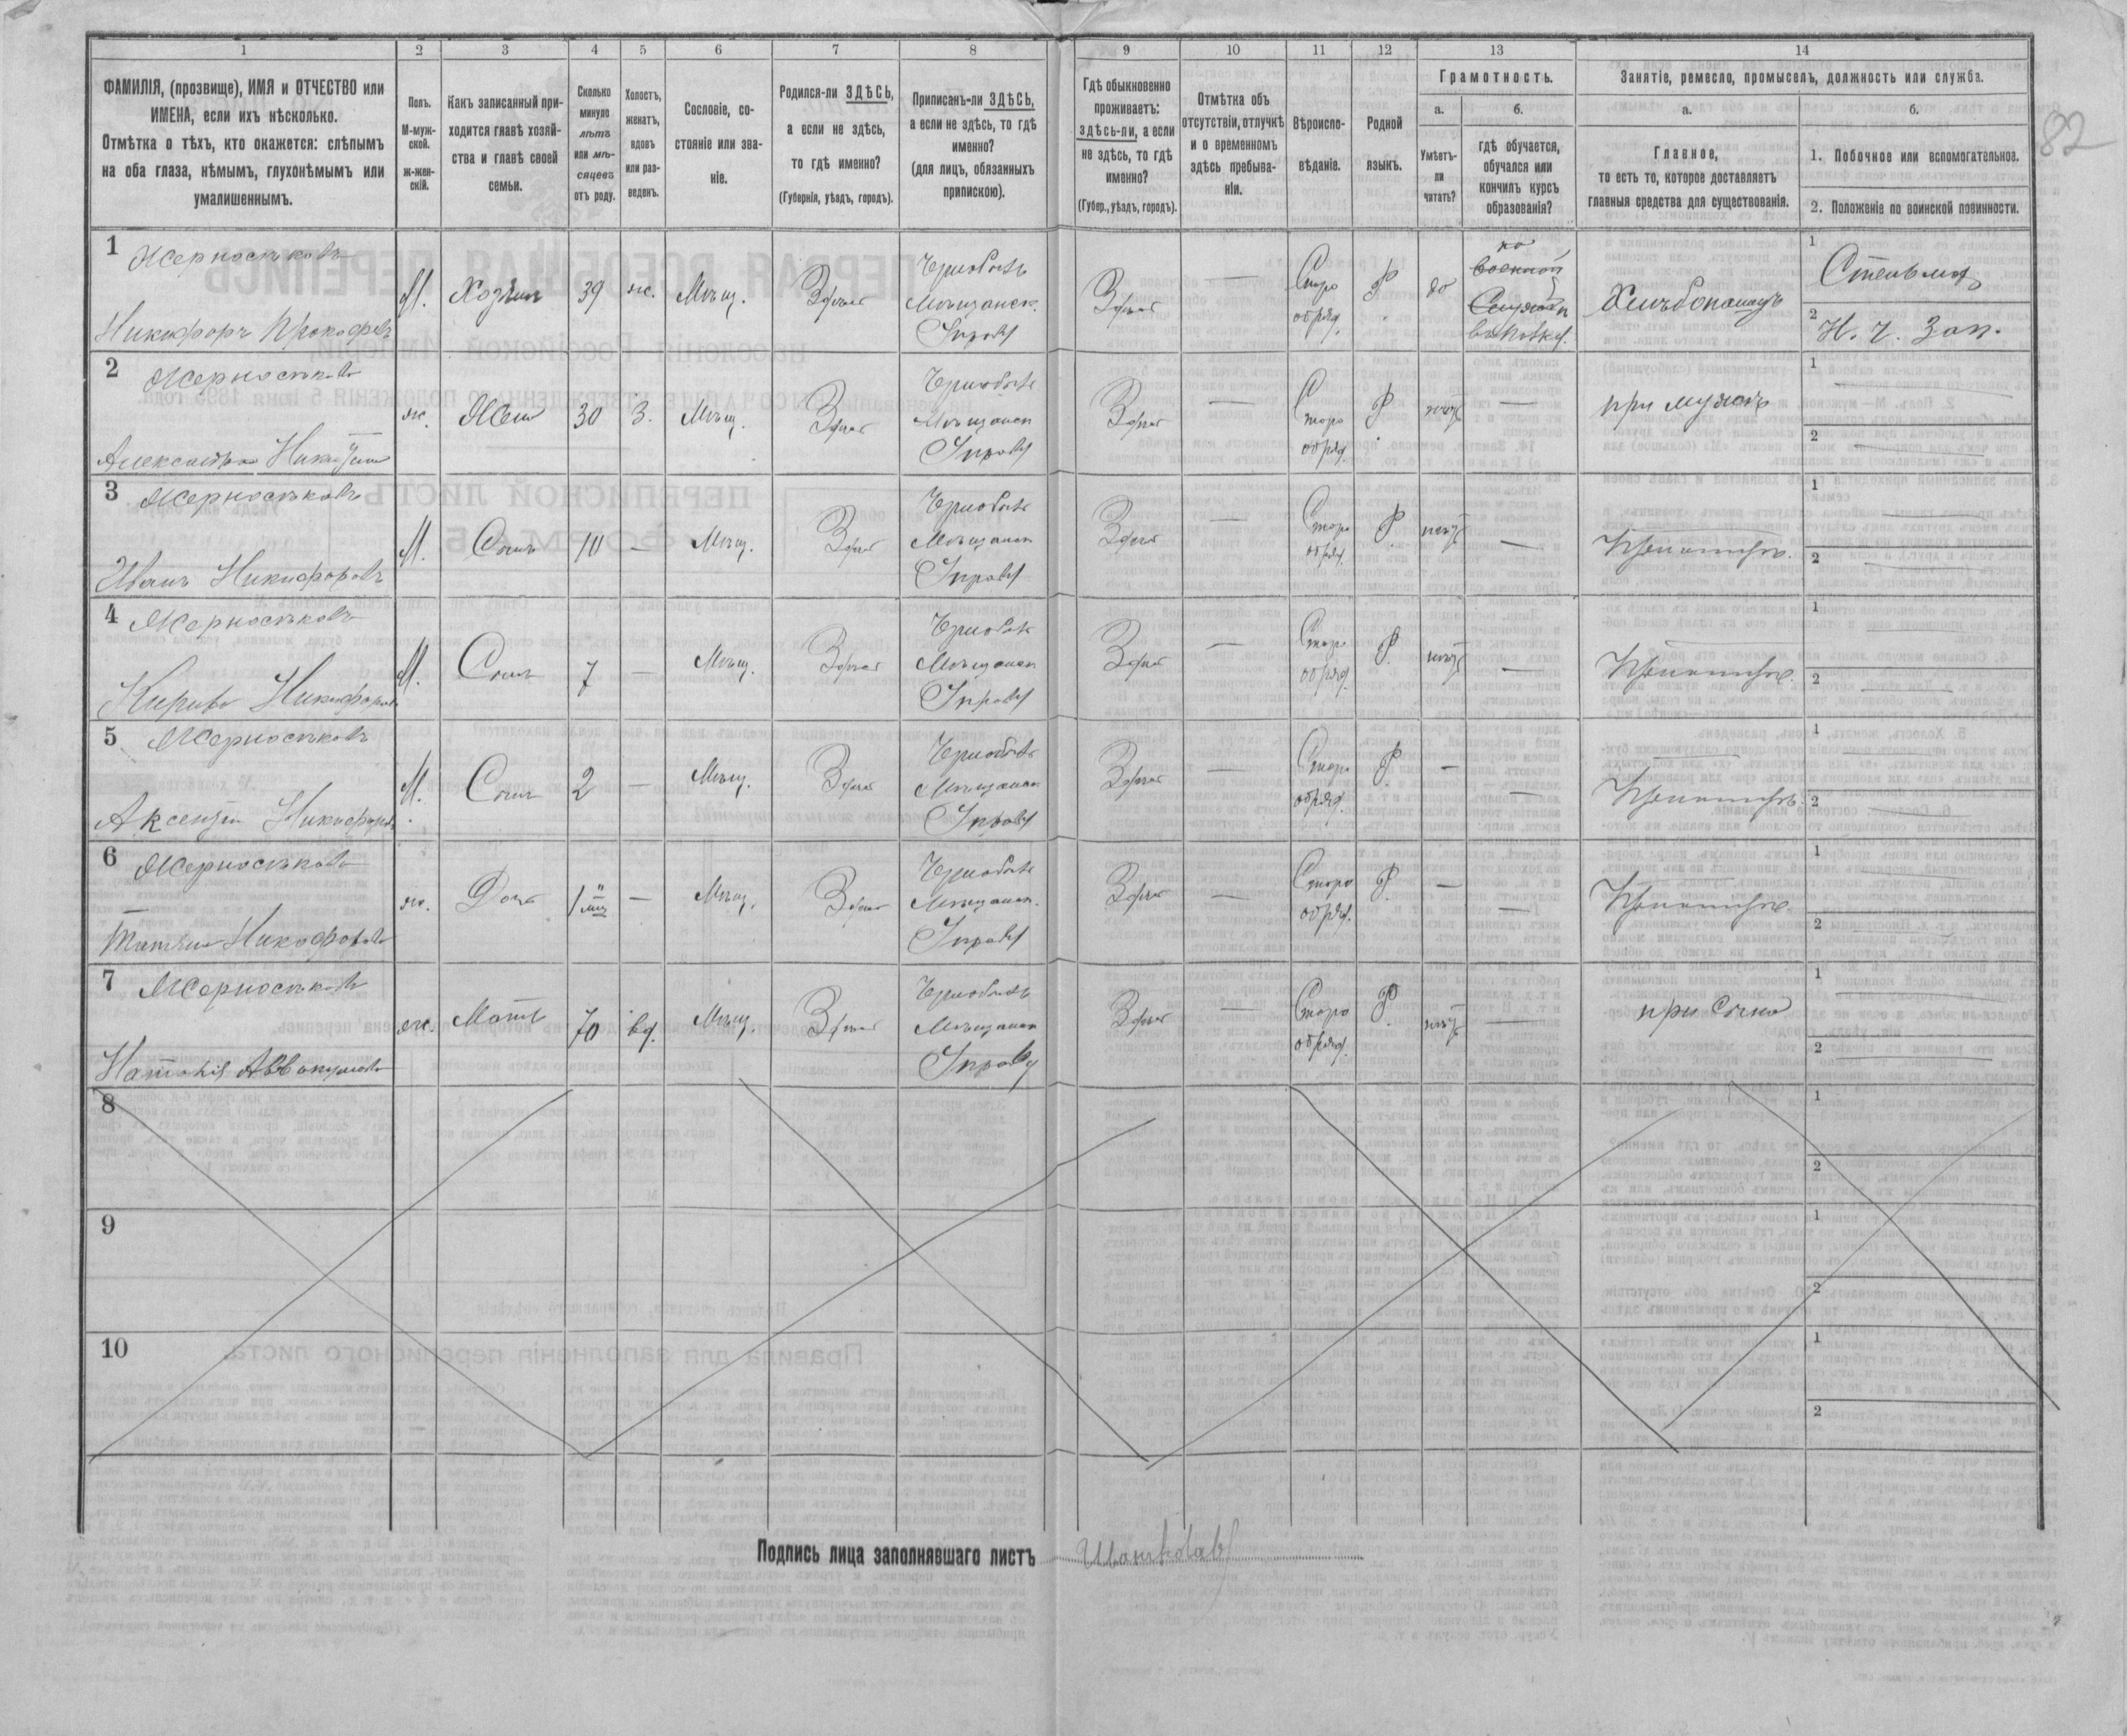 82
1 2 3 4 5 6 7 8 9 10 11 12 13 14
ФАМИЛІЯ, (прозвище), ИМЯ и ОТЧЕСТВО или
ИМЕНА, если ихъ нѣсколько.
Отмѣтка о тѣхъ, кто окажется: слѣпымъ
на оба глаза, нѣмымъ, глухонѣмымъ или
умалишеннымъ.
Полъ.
М-муж-
ской.
ж-жен-
скій.
Какъ записанный при-
ходится главѣ хозяй-
ства и главѣ своей
семьи.
Сколько
минуло
лѣтъ
или мѣ-
сяцевъ
отъ роду.
Холостъ,
женатъ,
вдовъ
или раз-
веденъ.
Сословіе, со-
стояніе или зва-
ніе.
Родился-ли ЗДѢСЬ,
а если не здѣсь,
то гдѣ именно?
(Губернія, уѣздъ, городъ).
Приписанъ-ли ЗДѢСЬ,
а если не здѣсь, то гдѣ
именно?
(для лицъ, обязанныхъ
припискою).
Гдѣ обыкновенно
проживаетъ:
здѣсь-ли, а если
не здѣсь, то гдѣ
именно?
(Губер., уѣздъ, городъ).
Отмѣтка объ
отсутствіи, отлучкѣ
и о временномъ
здѣсь пребыва-
ніи.
Вѣроиспо-
вѣданіе.
Родной
языкъ.
Грамотность.
а.
Умѣетъ-
ли
читать?
б.
гдѣ обучается,
обучался или
кончилъ курсъ
образованія?
Занятіе, ремесло, промыселъ, должность или служба.
а.
Главное,
то есть то, которое доставляетъ
главныя средства для существованія.
б.
1. Побочное или вспомогательное.
2. Положеніе по воинской повинности.
1
Жерносѣковъ
Никифоръ Прокофьевъ
М. Хозяинъ 39 ж. Мѣщ. Здѣсь
Мѣщанск.
Управы
Здѣсь —
Старо
обряд.
Р да
1
2 Н. ч. Зап.
2
Жерносѣкова
Александра
ж. Жена 30 З. Мѣщ. Здѣсь
Мѣщанск
Управы
Здѣсь —
Старо
обряд.
Р. нѣтъ — при мужѣ
1 —
2 —
3
Жерносѣковъ
Иванъ Никифоровъ
М. Сынъ 10 — Мѣщ. Здѣсь
Мѣщанск
Управы
Здѣсь —
Старо
обряд.
Р. нѣтъ — При отцѣ.
1 —
2 —
4
Жерносѣковъ
Никифоровъ
М. Сынъ 7 — Мѣщ. Здѣсь
Мѣщанск
Управы
Здѣсь —
Старо
обряд.
Р. нѣтъ — При отцѣ.
1 —
2 —
5
Жерносѣковъ
Аксентій Никифоровъ
М. Сынъ 2 — Мѣщ. Здѣсь
Мѣщанск
Управы
Здѣсь —
Старо
обряд.
Р. — — При отцѣ.
1 —
2 —
6
Жерносѣкова
Татьяна Никифорова
ж. Дочь — Мѣщ. Здѣсь
Мѣщанск.
Управы
Здѣсь —
Старо
обряд.
Р. — — При отцѣ.
1 —
2 —
7
Жерносѣкова
Наталья Аввакумова
ж. Мать 70 вд. Мѣщ. Здѣсь
Мѣщанск
Управы
Здѣсь —
Старо
обряд.
Р. нѣтъ — при сынѣ
1 —
2 —
8
1
2
9
1
2
10
1
2
Подпись лица заполнявшаго листъ